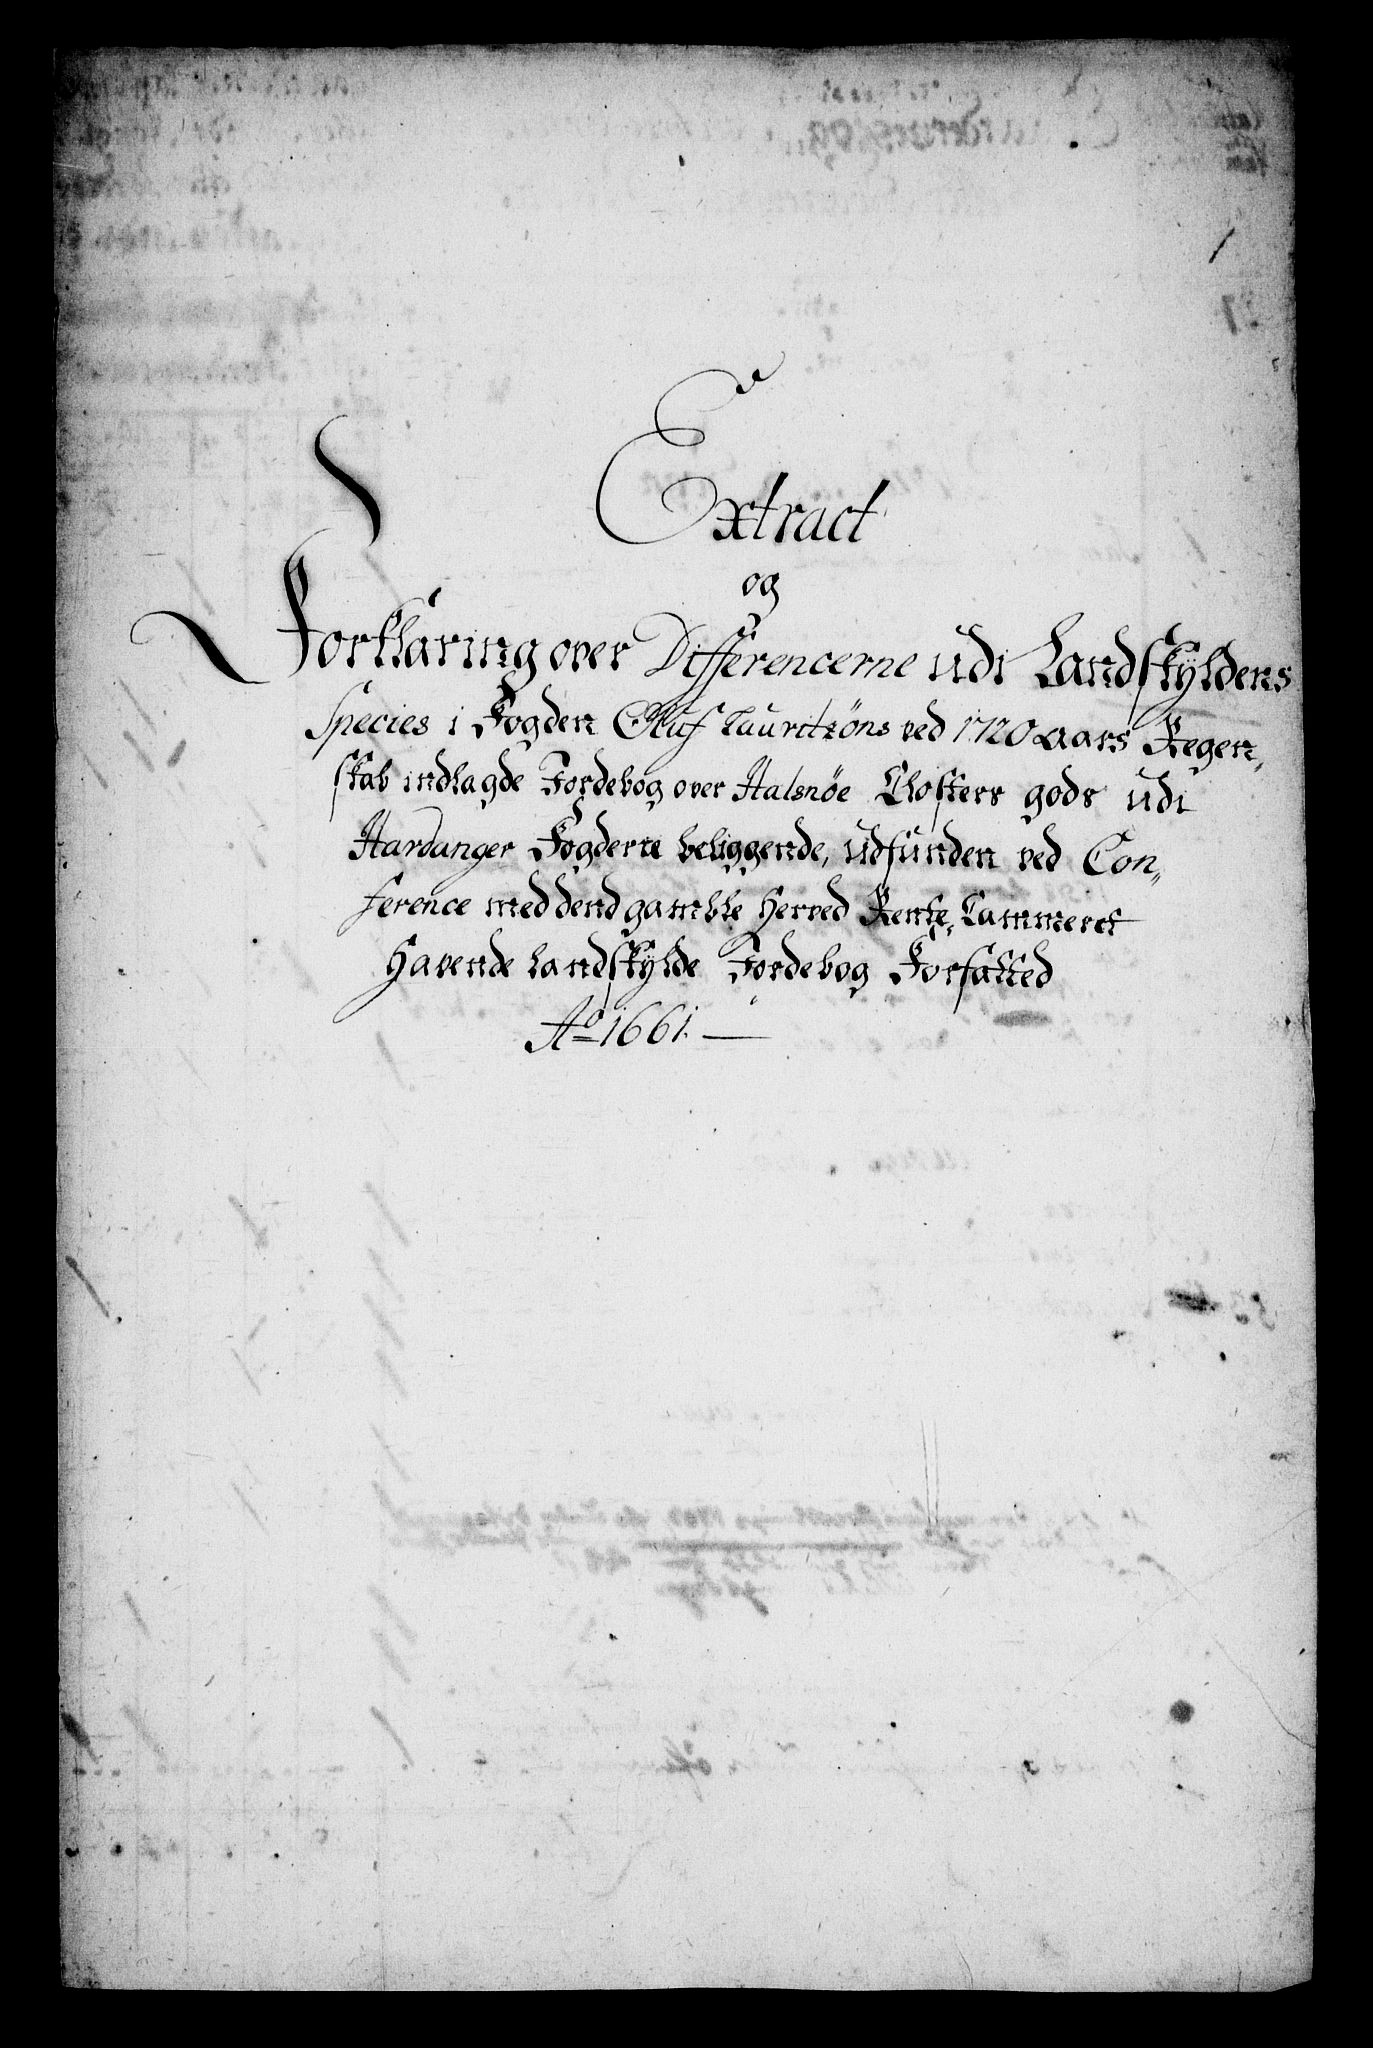 Extract
og
Forklaring over Differencerne udi Landskyldens
Species i Fogden Oluf Lauritzöns ved 1720 aars Regen„
skab indlagde Jordebog over Halsnöe Closters gods udi
Hardanger Fogderie beliggende, udfunden ved Con„
ference med dend gamble herved Rente„Cammeret
havende landskylde Jordebog Forfatted
Ao 1661. —